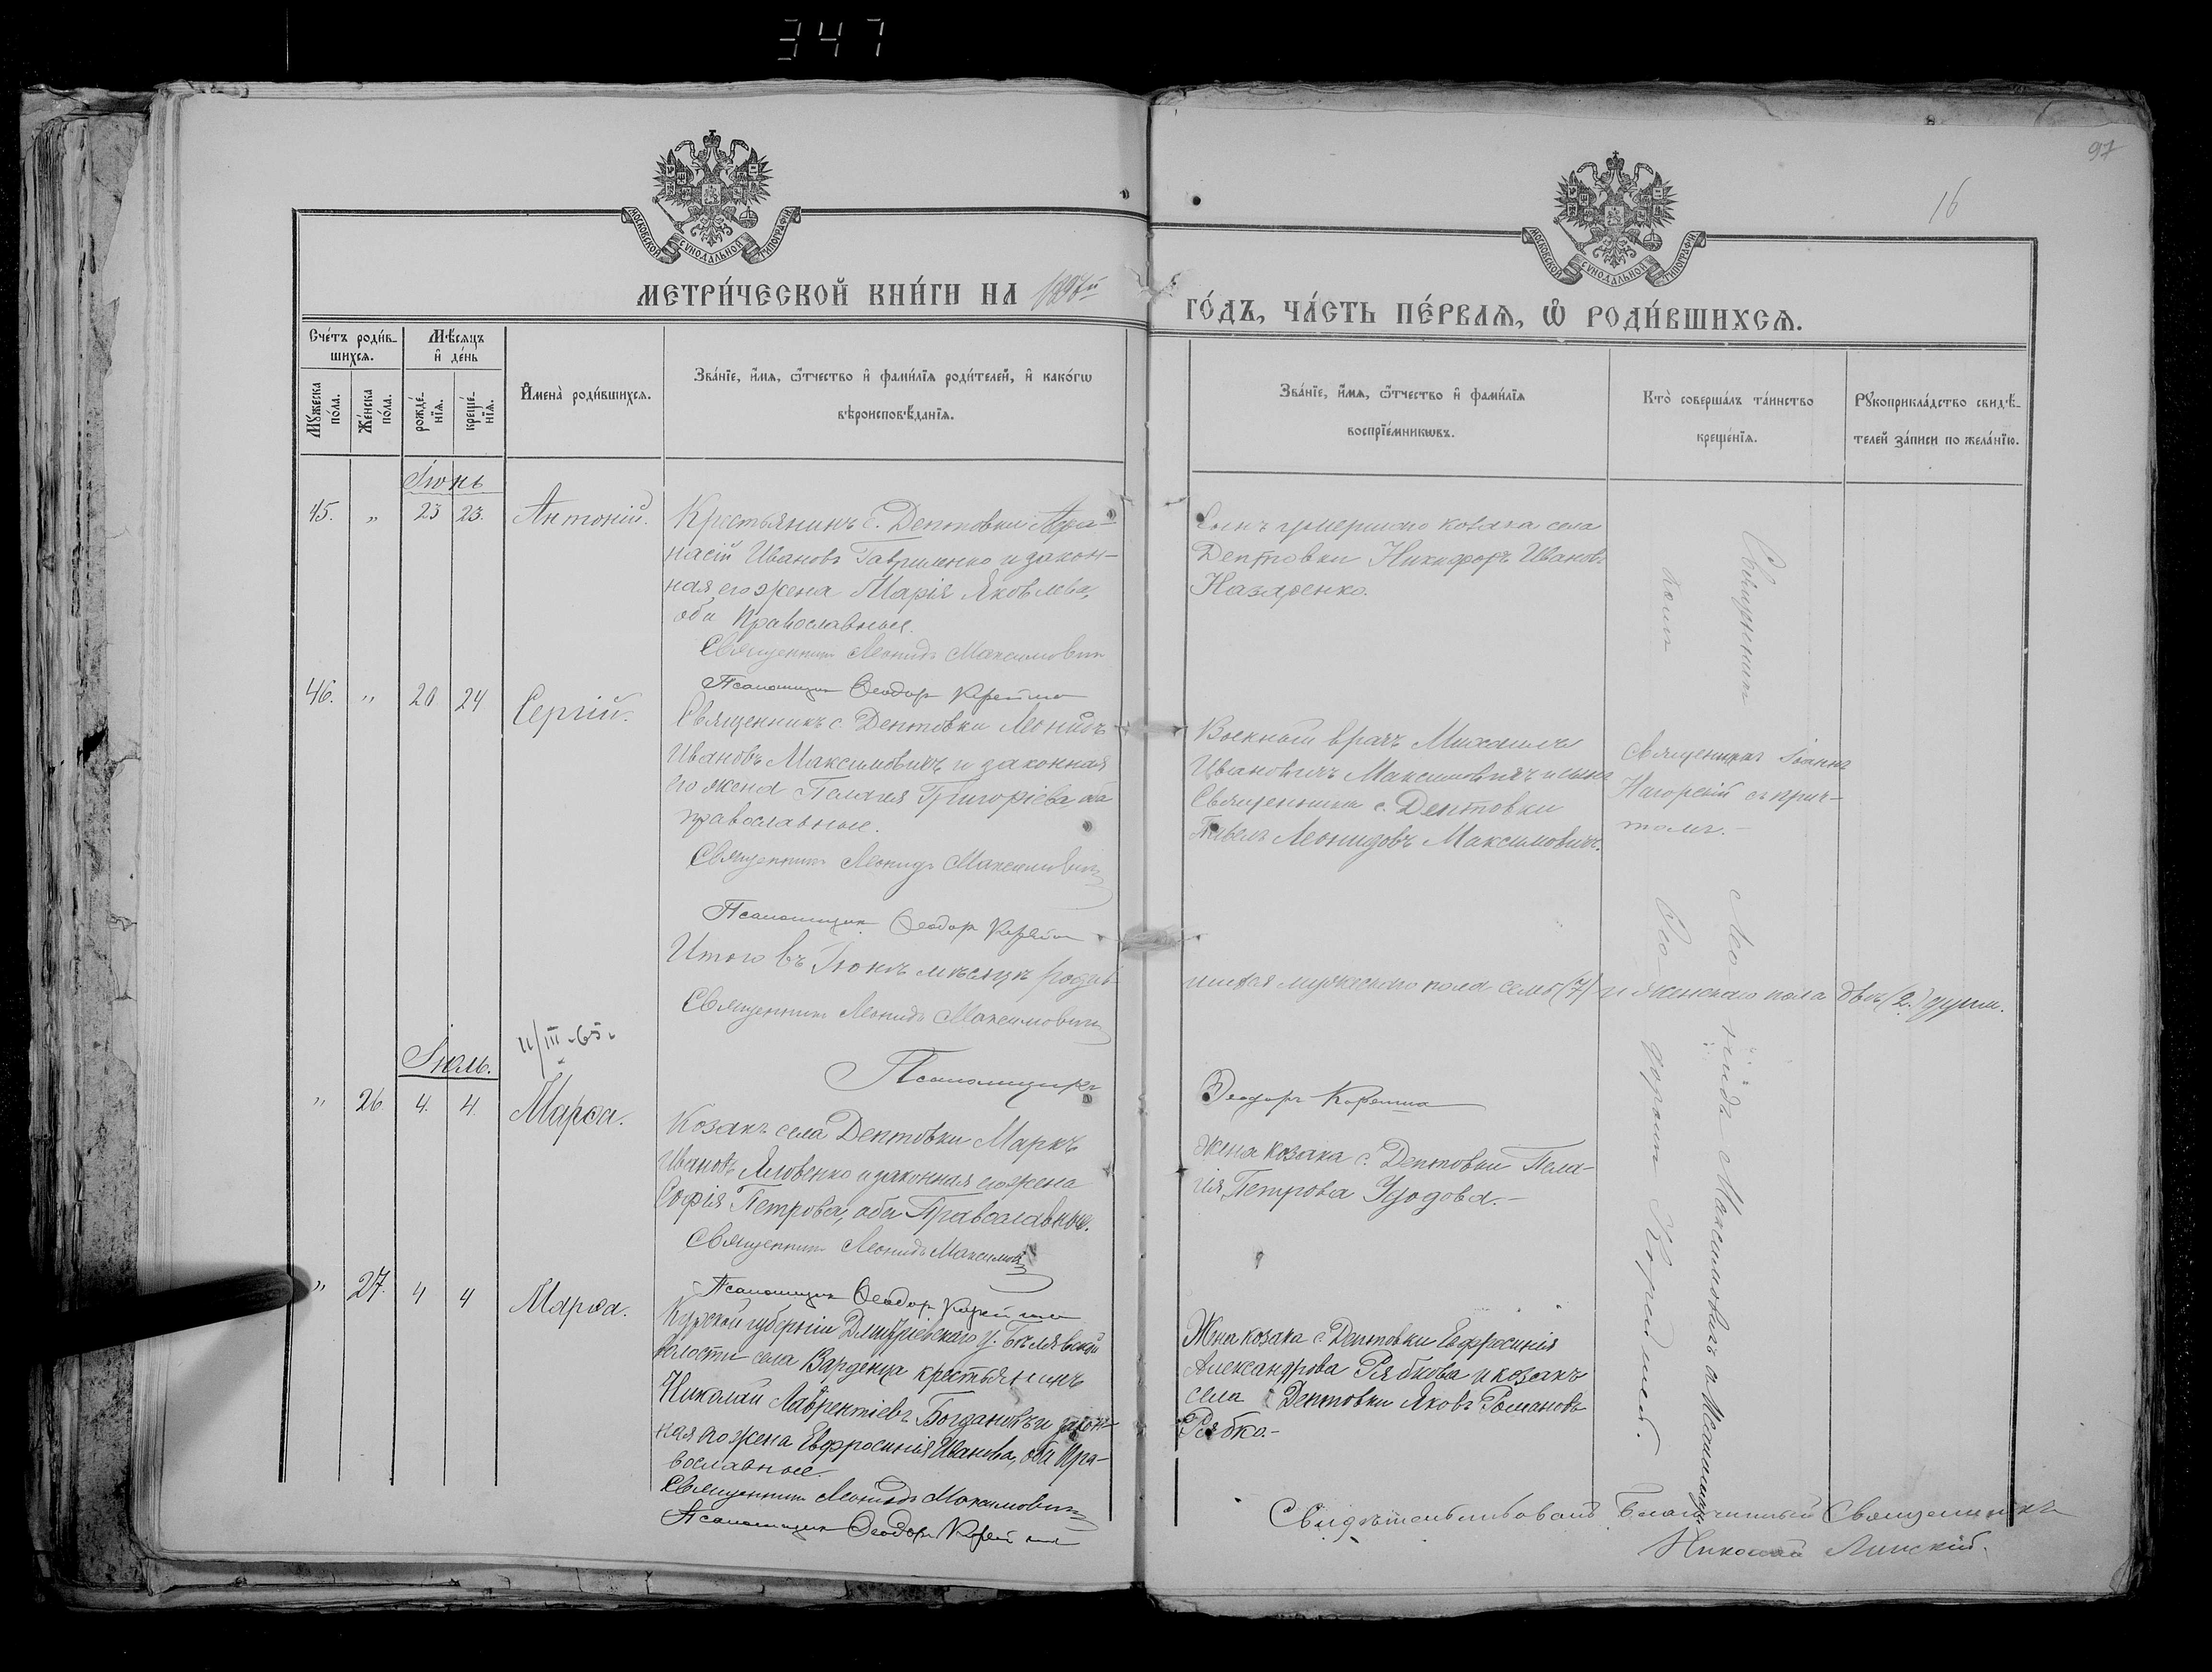 347
97
16
МОСКОВСКОЙ СѴНОДАЛЬНОЙ ТИПОГРАФІИ
МОСКОВСКОЙ СѴНОДАЛЬНОЙ ТИПОГРАФІИ
МЕТРИ́ЧЕСКОЙ КНИ́ГИ НА
ГО́ДЪ, ЧА́СТЬ ПЕ́РВАѦ, Ѽ РОДИ́ВШИХСѦ.
Сче́тъ роди́в-
шихсѧ.
Мѣ́сѧцъ
и҆ де́нь
Мꙋ́жеска по́ла.
Же́нска по́ла.
рожде́-
нїѧ.
креще́-
нїѧ.
И҆мена̀ роди́вшихсѧ.
Зва́нїе, и҆́мѧ, ѻ҆́тчество и҆ фами́лїѧ роди́телей, и҆ како́гѡ
вѣроисповѣ́данїѧ.
Зва́нїе, и҆́мѧ, ѻ҆́тчество и҆ фами́лїѧ
воспрїе́мникѡвъ.
Кто̀ соверша́лъ та́инство
креще́нїѧ.
Рꙋкоприкла́дство свидѣ́-
телей за́писи по жела́нїю.
Іюнь
45. " 23 23. Антоній.
Крестьянинъ с. Дептовки Афа-
насій Ивановъ Гавриленко и закон-
ная его жена Марія Яковлева,
оба Православные.
Священникъ Леонидъ Максимович
Псаломщик Ѳеодор Корейша
Сынъ умершаго козака села
Дептовки Никифоръ Ивановъ
Назаренко.
46. " 20 24 Сергій.
Священникъ с. Дептовки Леонидъ
Ивановъ Максимовичъ и законная
его жена Пелагія Григоріева оба
православные.
Священникъ Леонидъ Максимович
Псаломщик Ѳеодор Корейша
Военный врачъ Михаилъ
Ивановичъ Максимовичъ и сынъ
Священника с. Дептовки
Павелъ Леонидовъ Максимовичъ.
Священникъ Іоаннъ
Нагорскій съ прич-
томъ.-
Итого въ Іюнѣ мѣсяцѣ родив-
шихся мужескаго пола семь (7) и женскаго пола двѣ (2.) души.
Священникъ Леонидъ Максимович
Псаломщикъ
Ѳеодоръ Корейша
11/III-65.
Іюль.
" 26 4. 4. Марѳа.
Козакъ села Дептовки Маркъ
Ивановъ Яловенко и законная его жена
Софія Петрова, оба Православные.
Священникъ Леонидъ Максимов
Псаломщик Ѳеодор Корейша
Жена козака с. Дептовки Пела-
гія Петрова Удодова.-
" 27. 4 4 Марѳа.
Курской губерніи Дмитріевскаго у.
волости села крестьянинъ
Николай Лаврентіевъ Богдановъ и закон-
ная его жена Евфросинія Иванова, оба Пра-
вославные.
Священникъ Леонидъ Максимович
Псаломщик Ѳеодоръ Корейша
Жена козака с. Дептовки Евфросинія
Александрова Рябкова и козакъ
села Дептовки Яковъ Романовъ
Рябко.-
Священникъ Леонидъ Максимовичъ и Псаломщикъ
Ѳеодоръ Корейша.
Свидѣтельствовалъ Благочинный Священникъ
Николай